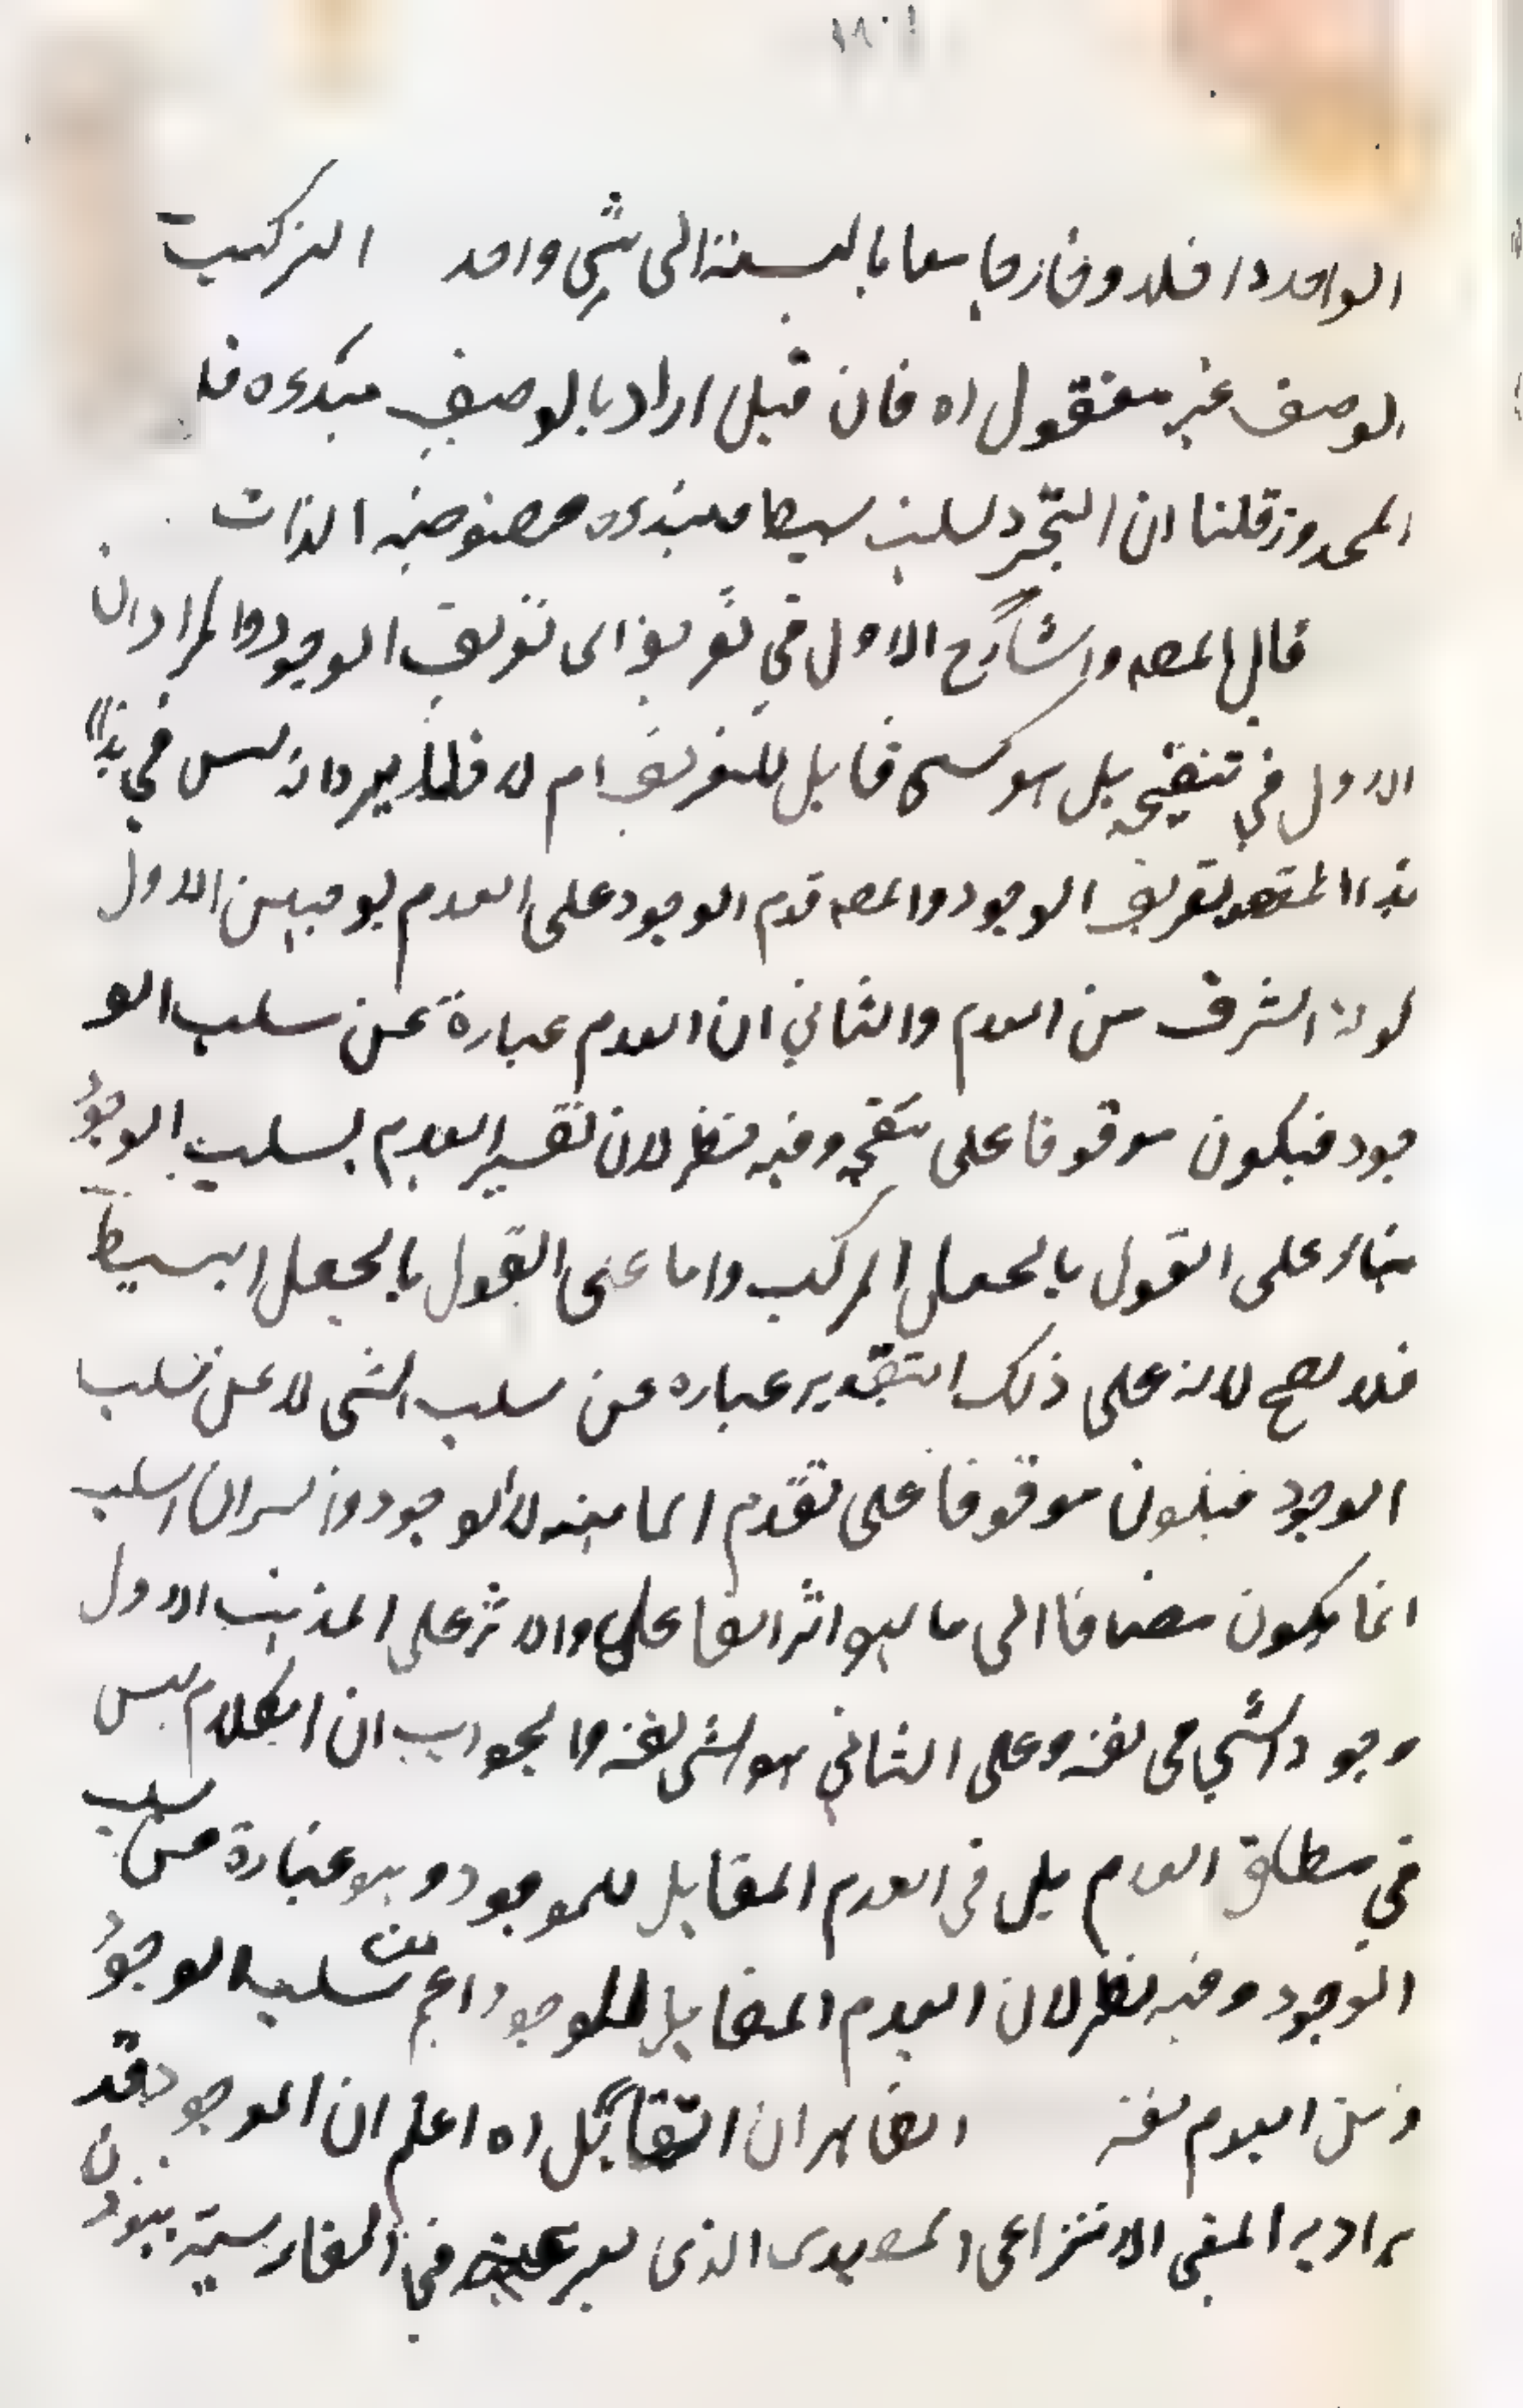 الواحد داخلا وخارجا معا بالنسبة الى شيء واحد التركيب
الوصف غير معقول اه فان قيل اراد بالوصف مبدءه فلا
المحذور قلنا ان التجرد سلب بسيط مبدءه خصوصية الذات
قال المصه والشارح الاول في تعريفه الى تعريف الوجود والمراد ان
الاول في تنقيحه بل هو قابل للتعريف ام لا فلا يرد انه ليس في
هذا المقصد تعريف الوجود والمصه قدم الوجود على العدم بوجهين الاول
كونه اشرف من العدم والثاني ان العدم عبارة عن سلب الو
جود فيكون موقوفا على تنقيحه وفيه نظر لان تفسير العدم بسلب الوجود
بناء على القول بالجعل المركب واما على القول بالجعل البسيط
فلا يصح لانه على ذلك التقدير عباره عن سلب الشى لا عن سلب
الوجود فيكون موقوفا على تقدم الماهية لا الوجود والسر ان السلب
انما يكون مضافا الى ما هو اثر الفاعل والاثر على المذهب الاول
وجود الشي فى نفسه وعلى الثاني هو الشى نفسه والجواب ان الكلام ليس
في مطلق العدم بل فى العدم المقابل للموجود وهو عبارة عن سلب
الوجود وفيه نظر لان العدم المقابل للموجود اعم من سلب الوجود
ومن العدم نفسه الظاهر ان التقابل اه اعلم ان الموجود قد
يراد به المعنى الانتزاعى المصدرى الذى يعبر عنه في الفارسية